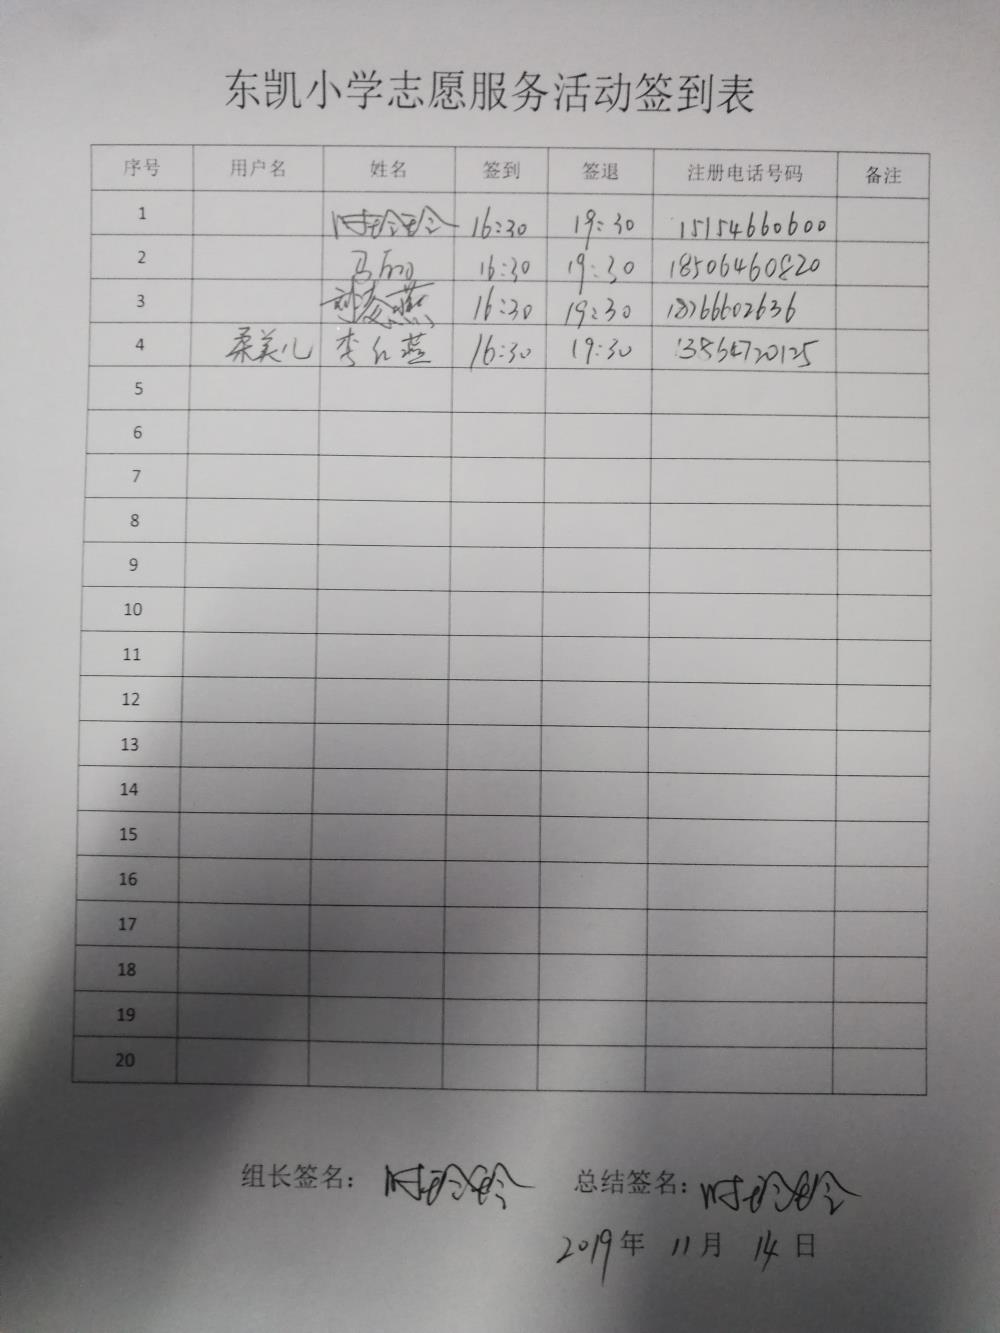 东凯小学志愿服务活动签到表
序号 用户名 姓名 签到 签退 注册电话号码 备注
1 时玲玲 16:30 19:30 15154660600
2 马 16:30 19:30 18506460820
3 16:30 19:30 18266602636
4 柔美儿 李红燕 16:30 19:30 13864720125
5
6
7
8
9
10
11
12
13
14
15
16
17
18
19
20
组长签名：时玲玲 总结签名：时玲玲
2019年 11月 14日